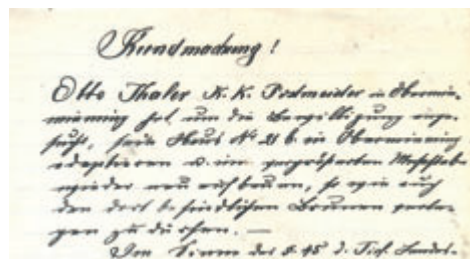 Kundmachung!
Otto Thaler K. K. Postmeister in Obermie-
mieming hat um die Bewilligung ange-
sucht, sein Haus № 21 b. in Obermieming
adaptieren u. im vergrößerten Maßstabe
wieder neu aufbauen, so wie auch
den dort befindlichen Brunnen verle-
gen zu dürfen. —
Im Sinne des §. 45 d. Tirol. Landes-